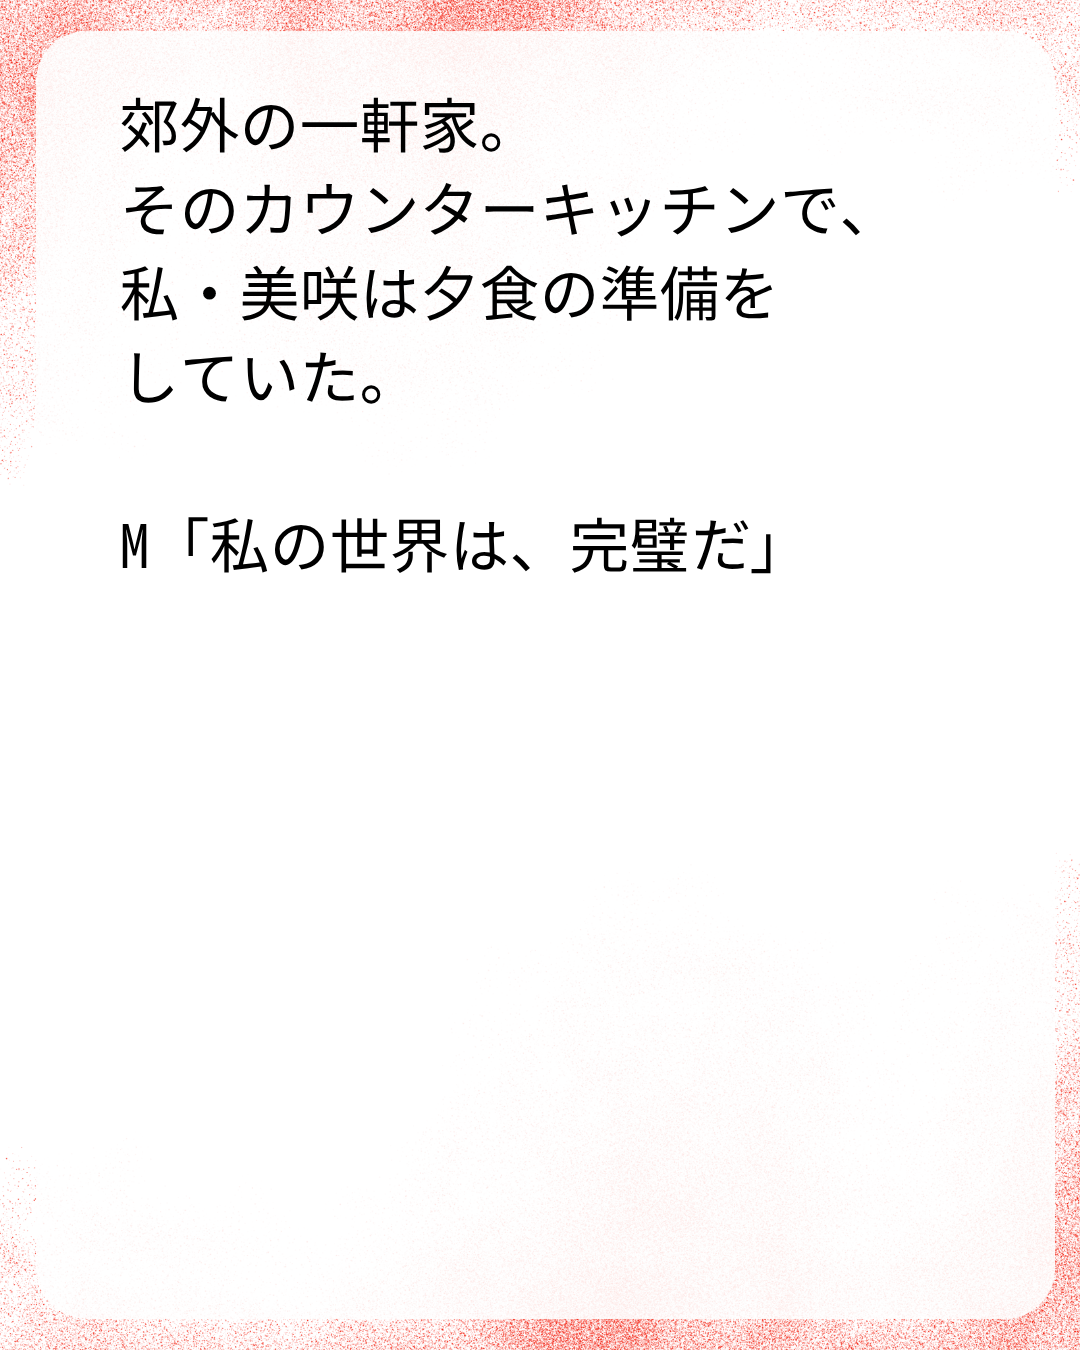 郊外の一軒家。
そのカウンターキッチンで、
私・美咲は夕食の準備を
していた。
M「私の世界は、完璧だ」